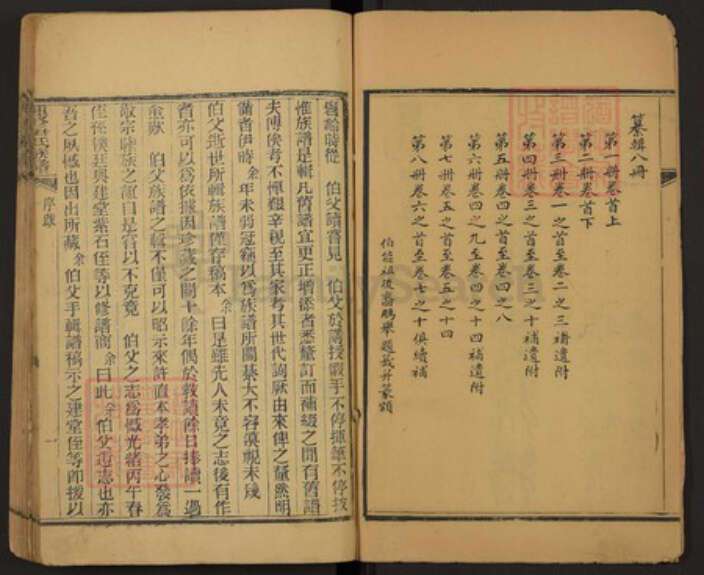 纂輯八冊
第一冊卷首上
第二冊卷首下
第三冊卷一之首至卷二之三補遺附
第四冊卷三之首至卷三之十補遺附
第五冊卷四之首至卷四之八
第六冊卷四之九至卷四之十四補遺附
第七冊卷五之首至卷五之十四
第八冊卷六之首至卷七之十俱續補
鵬舉題籤并篆額
伯父讀書見 伯父於講授暇手不停揮筆不停披
惟族譜是輯凡舊譜宜更正增添者悉釐訂而補綴之間有舊譜
失傳俟考不憚艱辛親至其家考其世代詢厥由來俾之釐然明
備者伊時余年未弱冠竊以為族譜所關綦大不容漠視未幾
伯父逝世所輯族譜僅存稿本余曰是雖先人未竟之志後有作
者亦可以為依據因珍藏之閱十餘年偶於教讀餘日捧讀一過
喟然歎 伯父族譜之輯不僅可以昭示來許直本孝弟之心發為
敬宗睦族之
自是容以不克竟 伯父之志為憾光緒丙午春
侄孫漢廷與建堂紫石侄等以修譜商余曰此余伯父遺志也亦
吾之夙憾也因出所藏余伯父手輯譜稿示之建堂侄等即援以
序跋
一